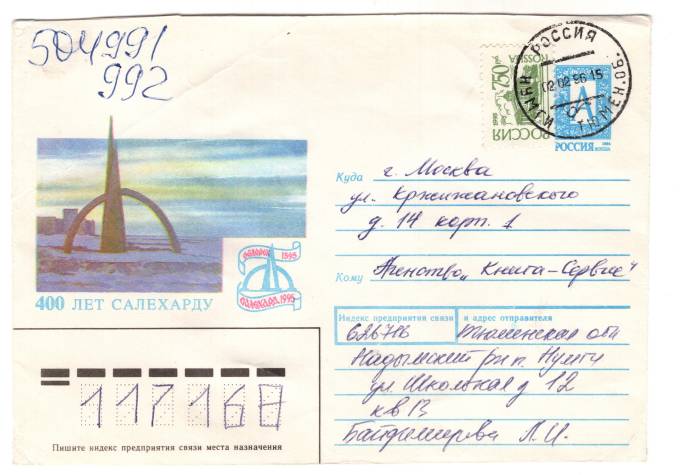 504991
992
РОССИЯ
ROSSIJA
750
РОССИЯ
02 02 96 15
РОССИЯ
Куда г. Москва
ул. Кржижановского
д. 14 корп. 1
Кому Агенство „Книга-Сервис"
1595
1995
400 ЛЕТ САЛЕХАРДУ
Индекс предприятия связи и адрес отправителя
Тюменская обл
Надымский р-н п. Нумги
ул Школьная д 12
кв 13
Л. И.
117168
Пишите индекс предприятия связи места назначения